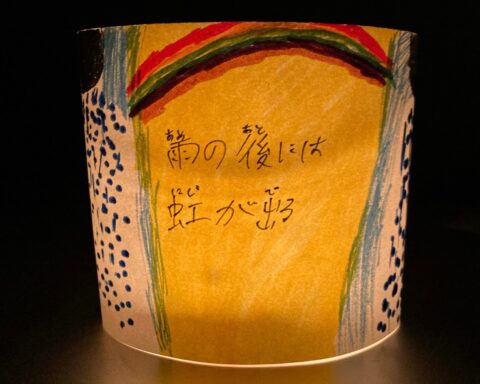 雨の後には
虹が出る